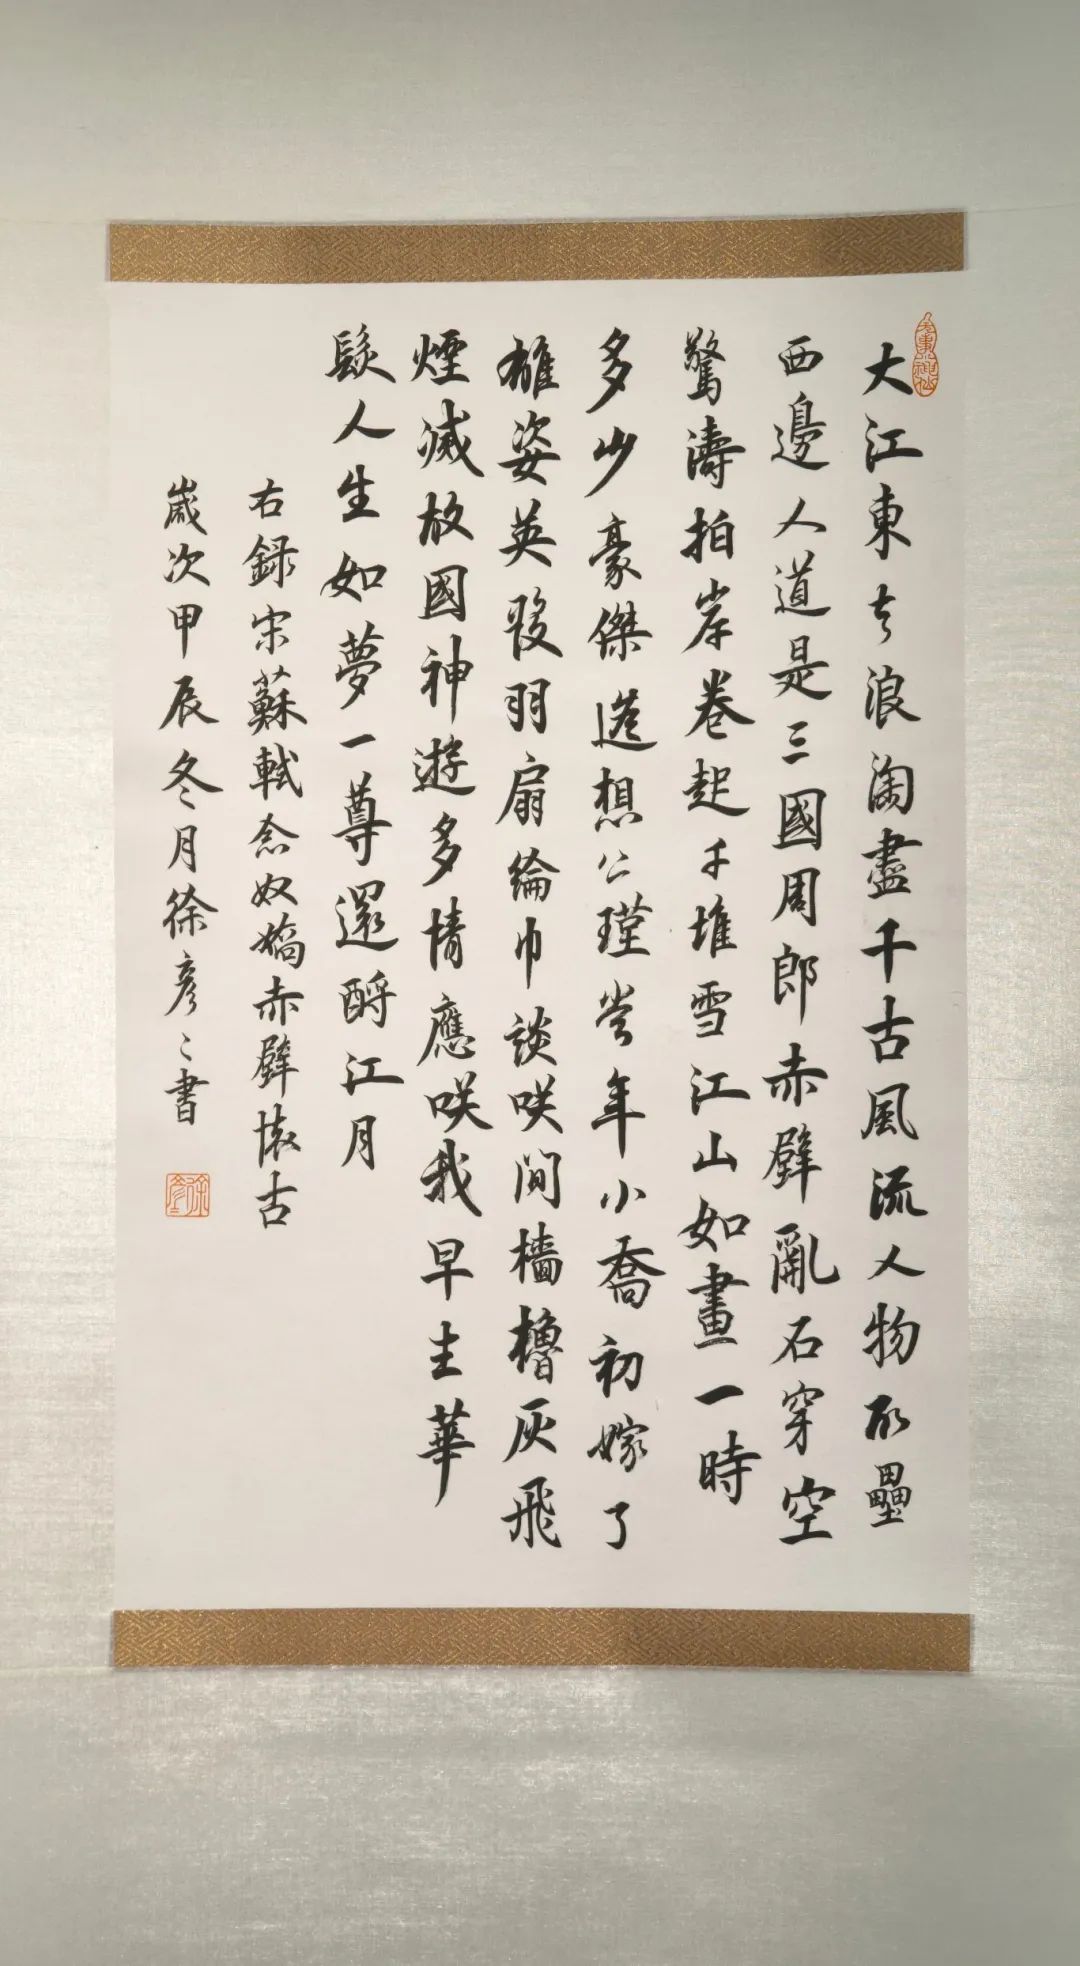 大江東去浪淘盡千古風流人物故壘
西邊人道是三國周郎赤壁亂石穿空
驚濤拍岸卷起千堆雪江山如畫一時
多少豪傑遥想公瑾當年小喬初嫁了
雄姿英發羽扇綸巾談咲間檣櫓灰飛
煙滅故國神遊多情應咲我早生華
髮人生如夢一尊還酹江月
右錄宋蘇軾念奴嬌赤壁懷古
歲次甲辰冬月徐彥〻書